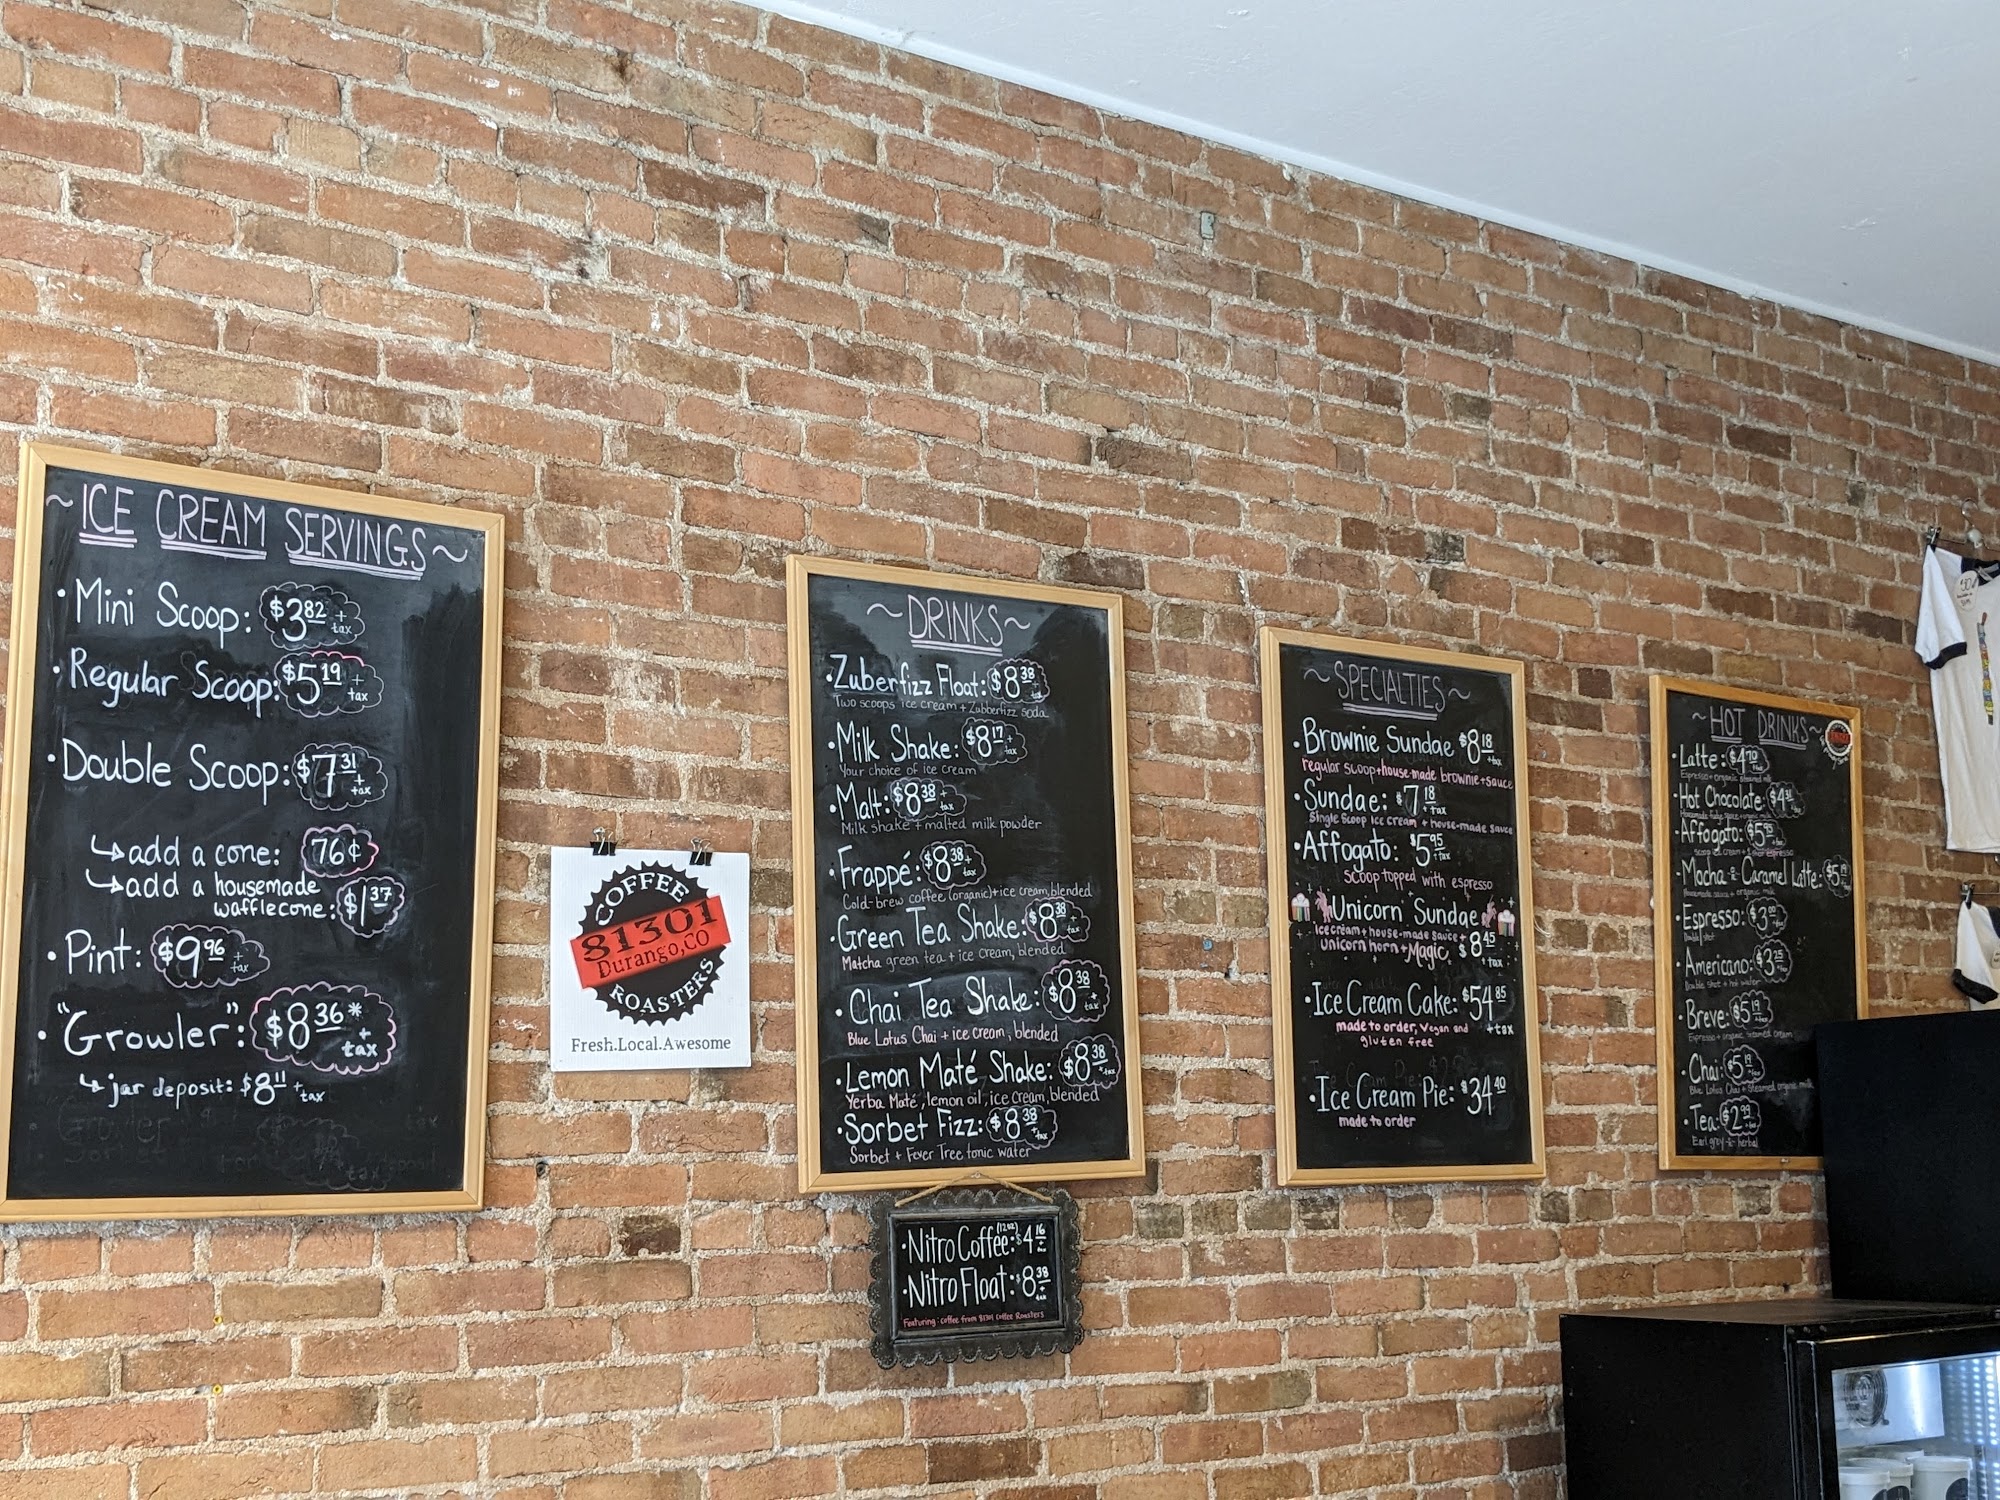 ~ICE CREAM SERVINGS~
• Mini Scoop: $3.82 + tax
• Regular Scoop: $5.19 + tax
• Double Scoop: $7.31 + tax
↳ add a cone: 76¢
↳ add a housemade
wafflecone: $1.37
• Pint: $9.96 + tax
• "Growler": $8.36* + tax
↳ jar deposit: $8.11 + tax
COFFEE
81301
Durango, CO
ROASTERS
Fresh.Local.Awesome
~DRINKS~
• Zuberfizz Float: $8.38
Two scoops ice cream + Zubberfizz soda
• Milk Shake: $8.17 + tax
Your choice of ice cream
• Malt: $8.38 + tax
Milk shake + malted milk powder
• Frappé: $8.38 + tax
Cold-brew coffee (organic) + ice cream, blended
• Green Tea Shake: $8.38 + tax
Matcha green tea + ice cream, blended
• Chai Tea Shake: $8.38 + tax
Blue Lotus Chai + ice cream, blended
• Lemon Maté Shake: $8.38 + tax
Yerba Maté, lemon oil, ice cream, blended
• Sorbet Fizz: $8.38 + tax
Sorbet + Fever Tree tonic water
• Nitro Coffee (12oz): $4.16 + tax
• Nitro Float: $8.38 + tax
Featuring: coffee from 81301 Coffee Roasters
~SPECIALTIES~
• Brownie Sundae $8.18 + tax
regular scoop + house-made brownie + sauce
• Sundae: $7.18 + tax
Single scoop ice cream + house-made sauce
• Affogato: $5.95 + tax
scoop topped with espresso
Unicorn Sundae
ice cream + house-made sauce +
unicorn horn + Magic $8.45 + tax
• Ice Cream Cake: $54.85 + tax
made to order, vegan and
gluten free
• Ice Cream Pie: $34.40
made to order
~HOT DRINKS~
• Latte: $4.70
Espresso + organic steamed milk
• Hot Chocolate: $4.31
Homemade fudge sauce + organic milk
• Affogato: $5.95
scoop ice cream + 1 shot espresso
• Mocha -&- Caramel Latte: $5.19
Homemade sauce + organic milk
• Espresso: $3.00
Double shot
• Americano: $3.25
Double shot + hot water
• Breve: $5.19
Espresso + organic steamed cream
• Chai: $5.19
Blue Lotus Chai + steamed organic milk
• Tea: $2.99
Earl grey -&- herbal